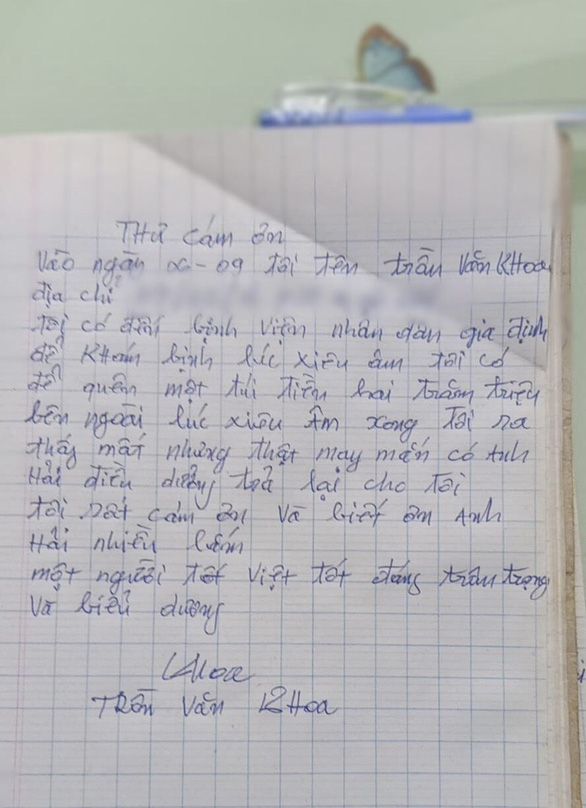 Thư cám ơn
Vào ngày 20-09 tôi tên trần Văn KHoa
địa chỉ
tôi có đến bệnh viện nhân dân gia định
để KHám bệnh lúc xiêu âm tôi có
để quên một túi tiền hai trăm triệu
bên ngoài lúc xiêu Âm xong tôi ra
thấy mất nhưng thật may mắn có Anh
Hải điều dưỡng trả lại cho tôi
tôi rất cám ơn và biết ơn Anh
Hải nhiều lắm
một người tốt việt tốt đáng trân trọng
Và biểu dương
Khoa
Trần Văn KHoa